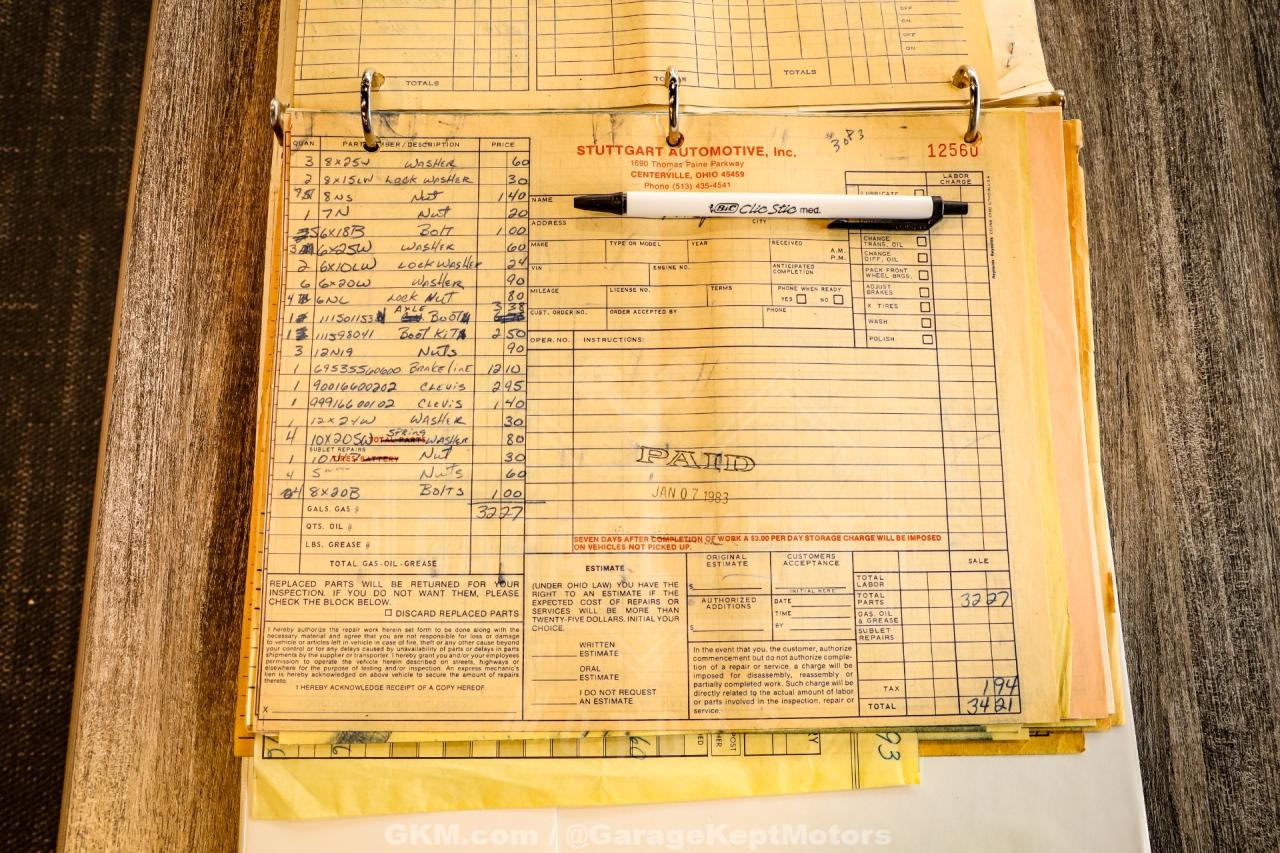 OFF
ON
OFF
ON
TOTALS
TOTALS
TOTALS
QUAN PART NUMBER/DESCRIPTION PRICE
3 8x25W WASHER 60
2 8x15LW LOCK WASHER 30
8NS Nut 1 40
1 7N Nut 20
6x18B Bolt 1 00
3 6x25W WASHER 60
2 6x10LW LOCKWASHER 24
6 6x20W WASHER 90
4 6NL LOCK Nut 80
1 AXLE Boot 3 38
1 111598041 Boot Kit 2 50
3 12N19 Nuts 90
1 69535560600 BRAKE line 12 10
1 90016600202 CLEVIS 2 95
1 99916600102 CLEVIS 1 40
1 12x24W WASHER 30
4 10x20SW SPRING WASHER 80
TOTAL PARTS
SUBLET REPAIRS
1 Nut 30
TIRES BATTERY
4 5 Nuts 60
4 8x20B Bolts 1 00
GALS. GAS @ 32 27
QTS. OIL @
LBS. GREASE @
TOTAL GAS-OIL-GREASE
STUTTGART AUTOMOTIVE, Inc.
1690 Thomas Paine Parkway
CENTERVILLE, OHIO 45459
Phone (513) 435-4541
#3083
12560
LABOR CHARGE
LUBRICATE
NAME
BIC Clic Stic med.
ADDRESS CITY
CHANGE TRANS. OIL
MAKE TYPE OR MODEL YEAR RECEIVED A.M. P.M.
CHANGE DIFF. OIL
VIN ENGINE NO. ANTICIPATED COMPLETION
PACK FRONT WHEEL BRGS.
MILEAGE LICENSE NO. TERMS PHONE WHEN READY
YES NO
ADJUST BRAKES
CUST. ORDER NO. ORDER ACCEPTED BY PHONE
X TIRES
WASH
POLISH
OPER. NO. INSTRUCTIONS:
PAID
JAN 07 1983
SEVEN DAYS AFTER COMPLETION OF WORK A $3.00 PER DAY STORAGE CHARGE WILL BE IMPOSED
ON VEHICLES NOT PICKED UP.
REPLACED PARTS WILL BE RETURNED FOR YOUR
INSPECTION. IF YOU DO NOT WANT THEM, PLEASE
CHECK THE BLOCK BELOW.
DISCARD REPLACED PARTS
I hereby authorize the repair work herein set forth to be done along with the
necessary material and agree that you are not responsible for loss or damage
to vehicle or articles left in vehicle in case of fire, theft or any other cause beyond
your control or for any delays caused by unavailability of parts or delays in parts
shipments by the supplier or transporter. I hereby grant you and/or your employees
permission to operate the vehicle herein described on streets, highways or
elsewhere for the purpose of testing and/or inspection. An express mechanic's
lien is hereby acknowledged on above vehicle to secure the amount of repairs
thereto.
I HEREBY ACKNOWLEDGE RECEIPT OF A COPY HEREOF.
X
ESTIMATE
(UNDER OHIO LAW) YOU HAVE THE
RIGHT TO AN ESTIMATE IF THE
EXPECTED COST OF REPAIRS OR
SERVICES WILL BE MORE THAN
TWENTY-FIVE DOLLARS. INITIAL YOUR
CHOICE.
WRITTEN ESTIMATE
ORAL ESTIMATE
I DO NOT REQUEST AN ESTIMATE
ORIGINAL ESTIMATE
$
AUTHORIZED ADDITIONS
$
CUSTOMERS ACCEPTANCE
INITIAL HERE
DATE
TIME
BY
In the event that you, the customer, authorize
commencement but do not authorize comple-
tion of a repair or service, a charge will be
imposed for disassembly, reassembly or
partially completed work. Such charge will be
directly related to the actual amount of labor
or parts involved in the inspection, repair or
service.
SALE
TOTAL LABOR
TOTAL PARTS 32 27
GAS, OIL & GREASE
SUBLET REPAIRS
TAX 1 94
TOTAL 34 21
93
GKM.com / @GarageKeptMotors